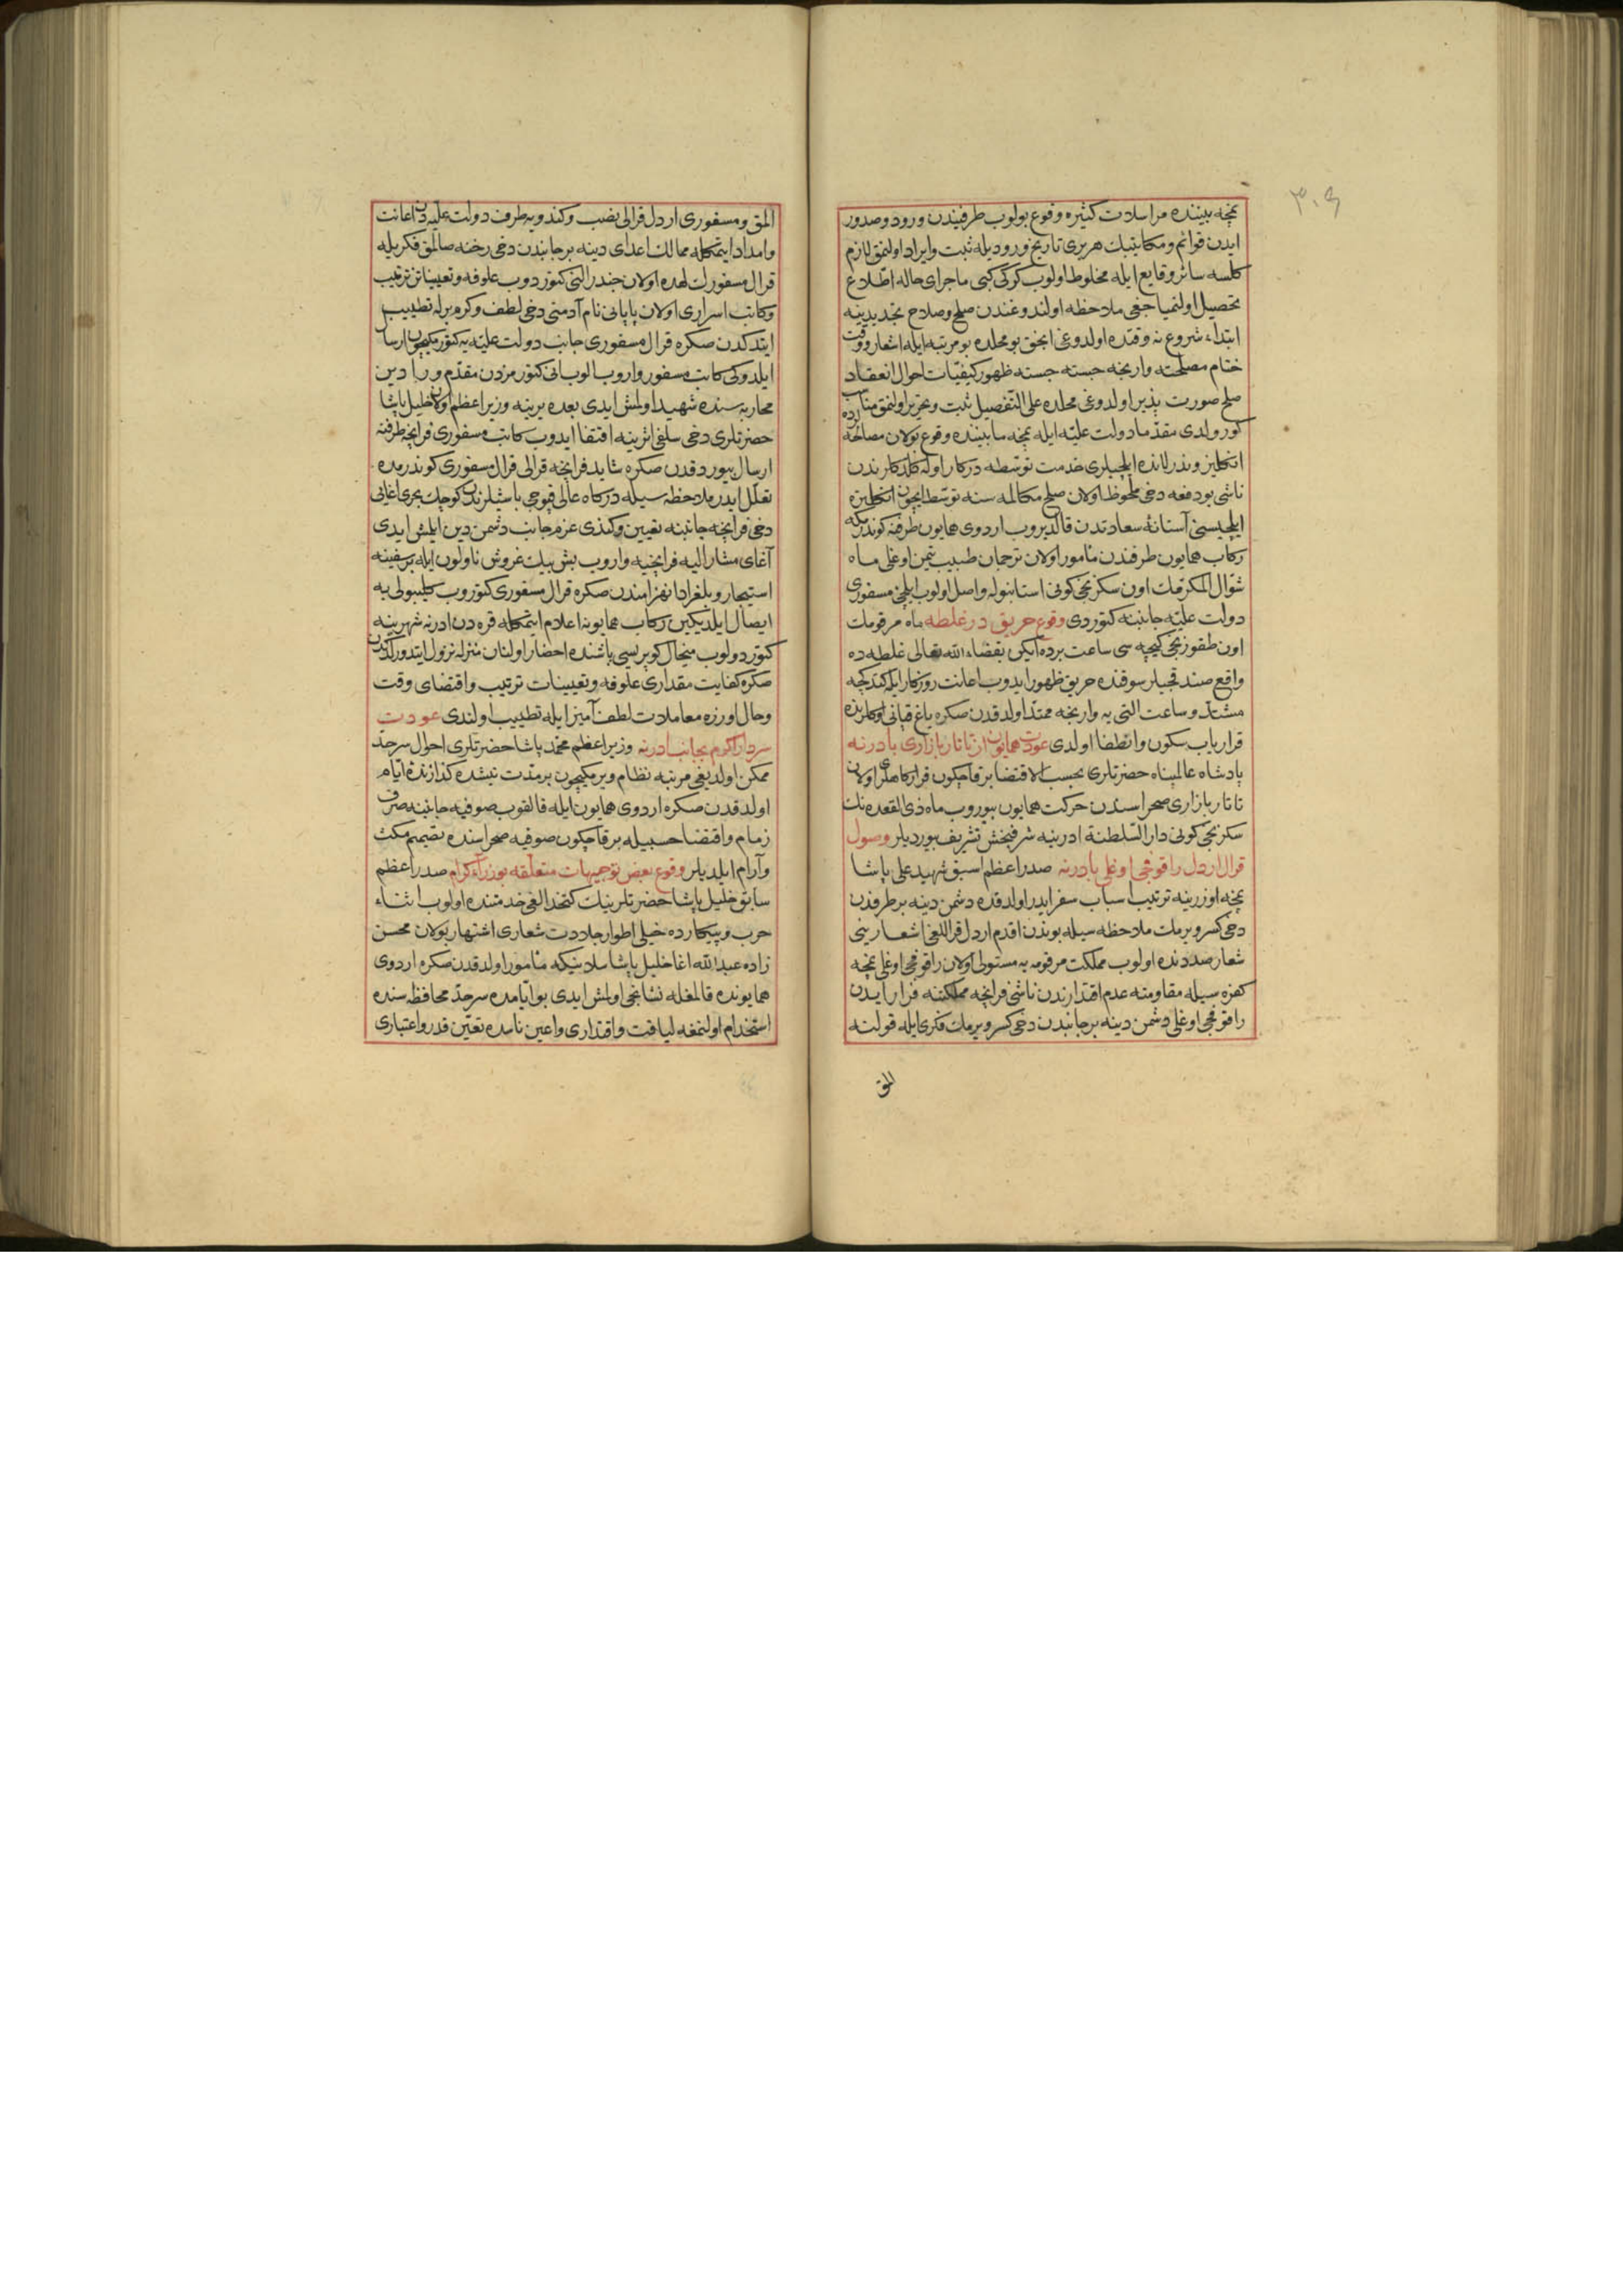 ٣٠٩
نمچه بیننده مراسلات کثیره وقوع بولوب طرفیندن ورود وصدور
ایدن قوائم ومکاتیبك هر بری تاریخ ورودیله ثبت وایراد اولنمق لازم
کلسه سائر وقایع ایله مخلوط اولوب کرکی کبی ماجرای حاله اطلاع
تحصیل اولنمیاجغی ملاحظه اولندوغندن صلح وصلاح تجدیدینه
ابتداء شروع نه وقتده اولدوغی انجق بو محلده بو مرتبه ایله اشعار ووقت
ختام مصلحته وارنجه جسته جسته ظهور کیفیات احوال انعقاد
صلح صورت پذیر اولدوغی محلده علی التفصیل ثبت وتحریر اولنمق مناسب
کورولدی مقدما دولت علیه ایله نمچه مابیننده وقوع بولان مصالحه
انکلیز وندرلانده ایلچیلری خدمت توسطه درکار اوله کلدکلرندن
ناشی بو دفعه دخی ملحوظ اولان صلح مکالمه سنه توسط ایچون انکلیزه
ایلچیسی آستانهٔ سعادتدن قالدیروب اردوی همایون طرفنه کوندرمکه
رکاب همایون طرفندن مأمور اولان ترجمان طبیب تیمن اوغلی ماه
شوال المکرمك اون سکزنجی کونی استانبوله واصل اولوب ایلچئ مسفوری
دولت علیه جانبنه کتوردی وقوع حریق در غلطه ماه مرقومك
اون طقوزنجی کیجه سی ساعت برده ایکن بقضاء الله تعالی غلطه ده
واقع صندقجیلر سوقنده حریق ظهور ایدوب اعانت روزکار ایله کیدرکجه
مشتد وساعت التی یه وارنجه ممتد اولدقدن صکره یاغ قپانی اوکلرنده
قرار یاب سکون وانطفا اولدی عودت همایون از تاتار بازاری بادرنه
پادشاه عالمپناه حضرتلری بحسب الاقتضا برقاچ کون قرارکاهلری اولان
تاتار بازاری صحراسندن حرکت همایون بیوروب ماه ذی القعده نك
سکزنجی کونی دار السلطنة ادرنه یه شرفبخش تشریف بیوردیلر وصول
قرال اردل راقوفجی اوغلی بادرنه صدر اعظم اسبق شهید علی پاشا
نمچه اوزرینه ترتیب اسباب سفر ایدر اولدقده دشمن دینه بر طرفدن
دخی کسر ویرمك ملاحظه سیله بوندن اقدم اردل قراللغی اشعارینی
شعار صددنده اولوب مملکت مرقومه یه مستولی اولان راقوفجی اوغلی نمچه
کفره سیله مقاومته عدم اقتدارندن ناشی فرانچه مملکتنه فرار ایدن
راقوفجی اوغلی دشمن دینه بر جانبدن دخی کسر ویرمك فکری ایله قولته
المق
المق ومسفوری اردل قرالی نصب وکندویه طرف دولت علیه دن اعانت
وامداد ایتمکله ممالك اعدای دینه بر جانبدن دخی رخنه صالمق فکریله
قرال مسفورك لهده اولان جندرالنی کتوردوب علوفه وتعییناتن ترتیب
وکاتب اسراری اولان پاپای نام آدمنی دخی لطف وکرم برله تطییب
ایتدکدن صکره قرال مسفوری جانب دولت علیه یه کتورمکیچون ارسال
ایلدوکی کاتب مسفور واروب الوب انی کتورمزدن مقدم ورادین
محاربه سنده شهید اولمش ایدی بعده یرینه وزیر اعظم اولان خلیل پاشا
حضرتلری دخی سلفی اثرینه اقتفا ایدوب کاتب مسفوری فرانچه طرفنه
ارسال بیوردقدن صکره شاید فرانچه قرالی قرال مسفوری کوندرمده
تعلل ایدر ملاحظه سیله درکاه عالی قپوجی باشیلرندن کوچك بحری اغایی
دخی فرانچه جانبنه تعیین وکندی عزم جانب دشمن دین ایلمش ایدی
آغای مشار الیه فرانچیه واروب بش بیك غروش ناولون ایله بر سفینه
استیجار وبلغراد انهزامندن صکره قرال مسفوری کتوروب کلیبولی یه
ایصال ایلدیکین رکاب همایونه اعلام ایتمکله قره دن ادرنه شهرینه
کتوردولوب میخال کوپریسی باشنده احضار اولنان منزله نزول ایتدورلدکدن
صکره کفایت مقداری علوفه وتعیینات ترتیب واقتضای وقت
وحال اوزره معاملات لطف آمیز ایله تطییب اولندی عودت
سردار اکرم بجانب ادرنه وزیر اعظم محمد پاشا حضرتلری احوال سرحد
ممکن اولدیغی مرتبه نظام ویرمکیچون بر مدت نیشده کذارنده ایام
اولدقدن صکره اردوی همایون ایله قالقوب صوفیه جانبنه صرف
زمام واقتضا حسبیله برقاچ کون صوفیه صحراسنده تصمیم مکث
وآرام ایلدیلر وقوع بعض توجیهات متعلقه بوزراء کرام صدر اعظم
سابق خلیل پاشا حضرتلرینك کتخدالغی خدمتنده اولوب اثناء
حرب وپیکارده خیلی اطوار جلادت شعاری اشتهار بولان محسن
زاده عبد الله اغا خلیل پاشا سلانیکه مأمور اولدقدن صکره اردوی
همایونده قالمغله نشانجی اولمش ایدی بو ایامده سرحد محافظه سنده
استخدام اولنمغه لیاقت واقتداری واعین ناسده تعین قدر واعتباری